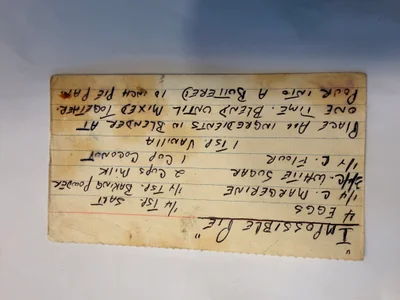 "IMPOSSIBLE PIE"
4 EGGS 1/4 TSP. SALT
1/4 C. MARGERINE 1/4 TSP. BAKING POWDER
C. WHITE SUGAR 2 CUPS MILK
1/4 C. FLOUR 1 CUP COCONUT
1 TSP VANILLA
PLACE ALL INGREDIENTS IN BLENDER AT
ONE TIME. BLEND UNTIL MIXED TOGETHER.
POUR INTO A BUTTERED 10 INCH PIE PAN